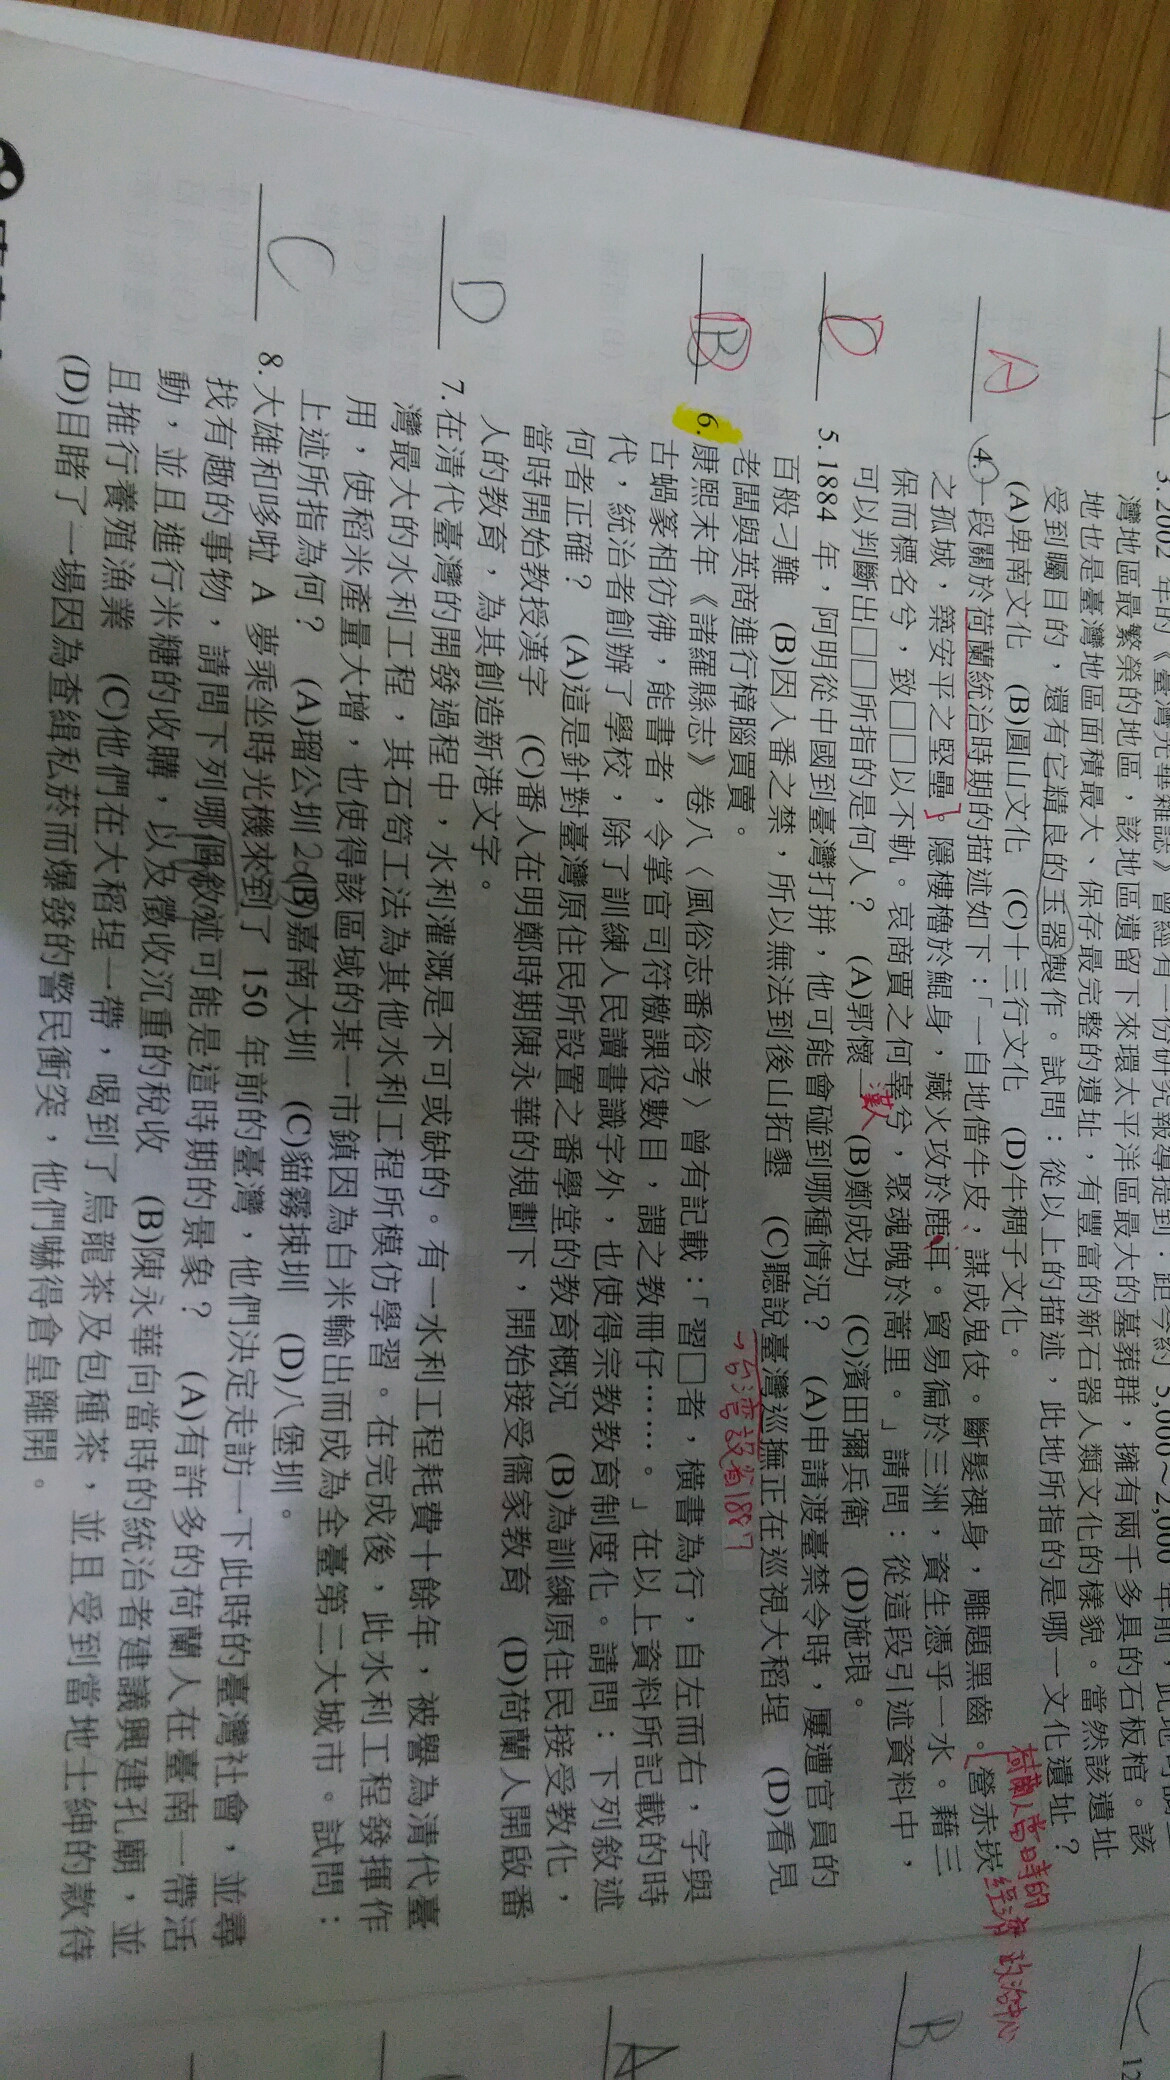 3.2002 年的《臺灣光華雜誌》曾經有一份研究報導提到：距今約 5,000～2,000 年前，此地
灣地區最繁榮的地區，該地區遺留下來環太平洋區最大的墓葬群，擁有兩千多具的石板棺。該
地也是臺灣地區面積最大、保存最完整的遺址，有豐富的新石器人類文化的樣貌。當然該遺址
受到矚目的，還有它精良的玉器製作。試問：從以上的描述，此地所指的是哪一文化遺址？
(A)卑南文化 (B)圓山文化 (C)十三行文化 (D)牛稠子文化。
荷蘭人當時的
經濟 政治中心
A
4.一段關於荷蘭統治時期的描述如下：「一自地借牛皮，謀成鬼伎。斷髮裸身，雕題黑齒。營赤崁
之孤城，築安平之堅壘。隱樓櫓於鯤身，藏火攻於鹿耳。貿易徧於三洲，資生憑乎一水。藉三
保而標名兮，致□□□以不軌。哀商賈之何辜兮，聚魂魄於蒿里。」請問：從這段引述資料中，
可以判斷出□□□所指的是何人？ (A)郭懷一 (B)鄭成功 (C)濱田彌兵衛 (D)施琅。
漢人
5.1884 年，阿明從中國到臺灣打拼，他可能會碰到哪種情況？ (A)申請渡臺禁令時，屢遭官員的
百般刁難 (B)因入番之禁，所以無法到後山拓墾 (C)聽說臺灣巡撫正在巡視大稻埕 (D)看見
老闆與英商進行樟腦買賣。
台灣設省1887
B
6.康熙末年《諸羅縣志》卷八〈風俗志番俗考〉曾有記載：「習□者，橫書為行，自左而右，字與
古蝸篆相彷彿，能書者，令掌官司符檄課役數目，謂之教冊仔……。」在以上資料所記載的時
代，統治者創辦了學校，除了訓練人民讀書識字外，也使得宗教教育制度化。請問：下列敘述
何者正確？ (A)這是針對臺灣原住民所設置之番學堂的教育概況 (B)為訓練原住民接受教化，
當時開始教授漢字 (C)番人在明鄭時期陳永華的規劃下，開始接受儒家教育 (D)荷蘭人開啟番
人的教育，為其創造新港文字。
D
7.在清代臺灣的開發過程中，水利灌溉是不可或缺的。有一水利工程耗費十餘年，被譽為清代臺
灣最大的水利工程，其石笱工法為其他水利工程所模仿學習。在完成後，此水利工程發揮作
用，使稻米產量大增，也使得該區域的某一市鎮因為白米輸出而成為全臺第二大城市。試問：
上述所指為何？ (A)瑠公圳 (B)嘉南大圳 (C)貓霧捒圳 (D)八堡圳。
C
8.大雄和哆啦 A 夢乘坐時光機來到了 150 年前的臺灣，他們決定走訪一下此時的臺灣社會，並尋
找有趣的事物，請問下列哪個敘述可能是這時期的景象？ (A)有許多的荷蘭人在臺南一帶活
動，並且進行米糖的收購，以及徵收沉重的稅收 (B)陳永華向當時的統治者建議興建孔廟，並
且推行養殖漁業 (C)他們在大稻埕一帶，喝到了烏龍茶及包種茶，並且受到當地士紳的款待
(D)目睹了一場因為查緝私菸而爆發的警民衝突，他們嚇得倉皇離開。
12
B
A